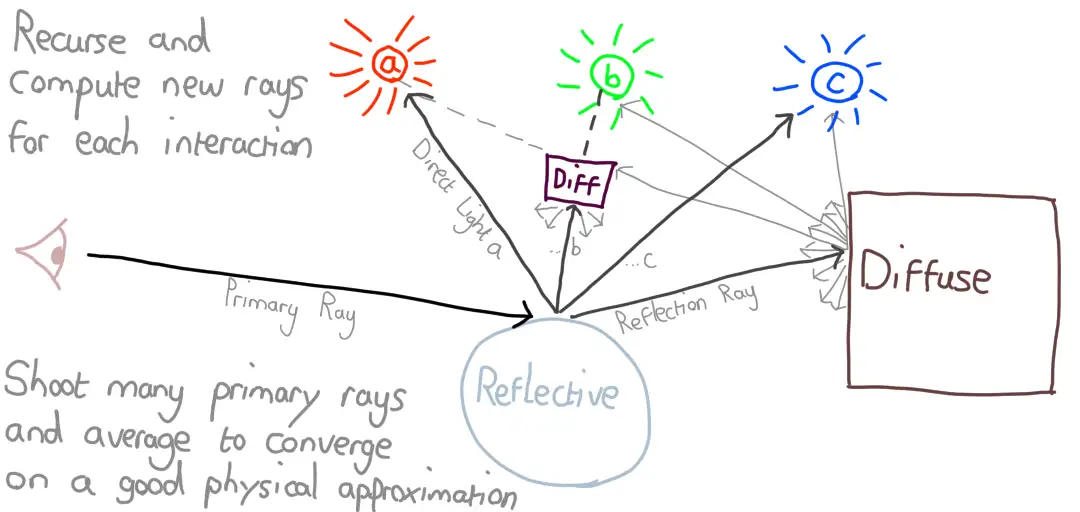 Recurse and
compute new rays
for each interaction
a
b
c
Diff
Direct Light a
...b
...c
Diffuse
Primary Ray
Reflection Ray
Reflective
Shoot many primary rays
and average to converge
on a good physical approximation